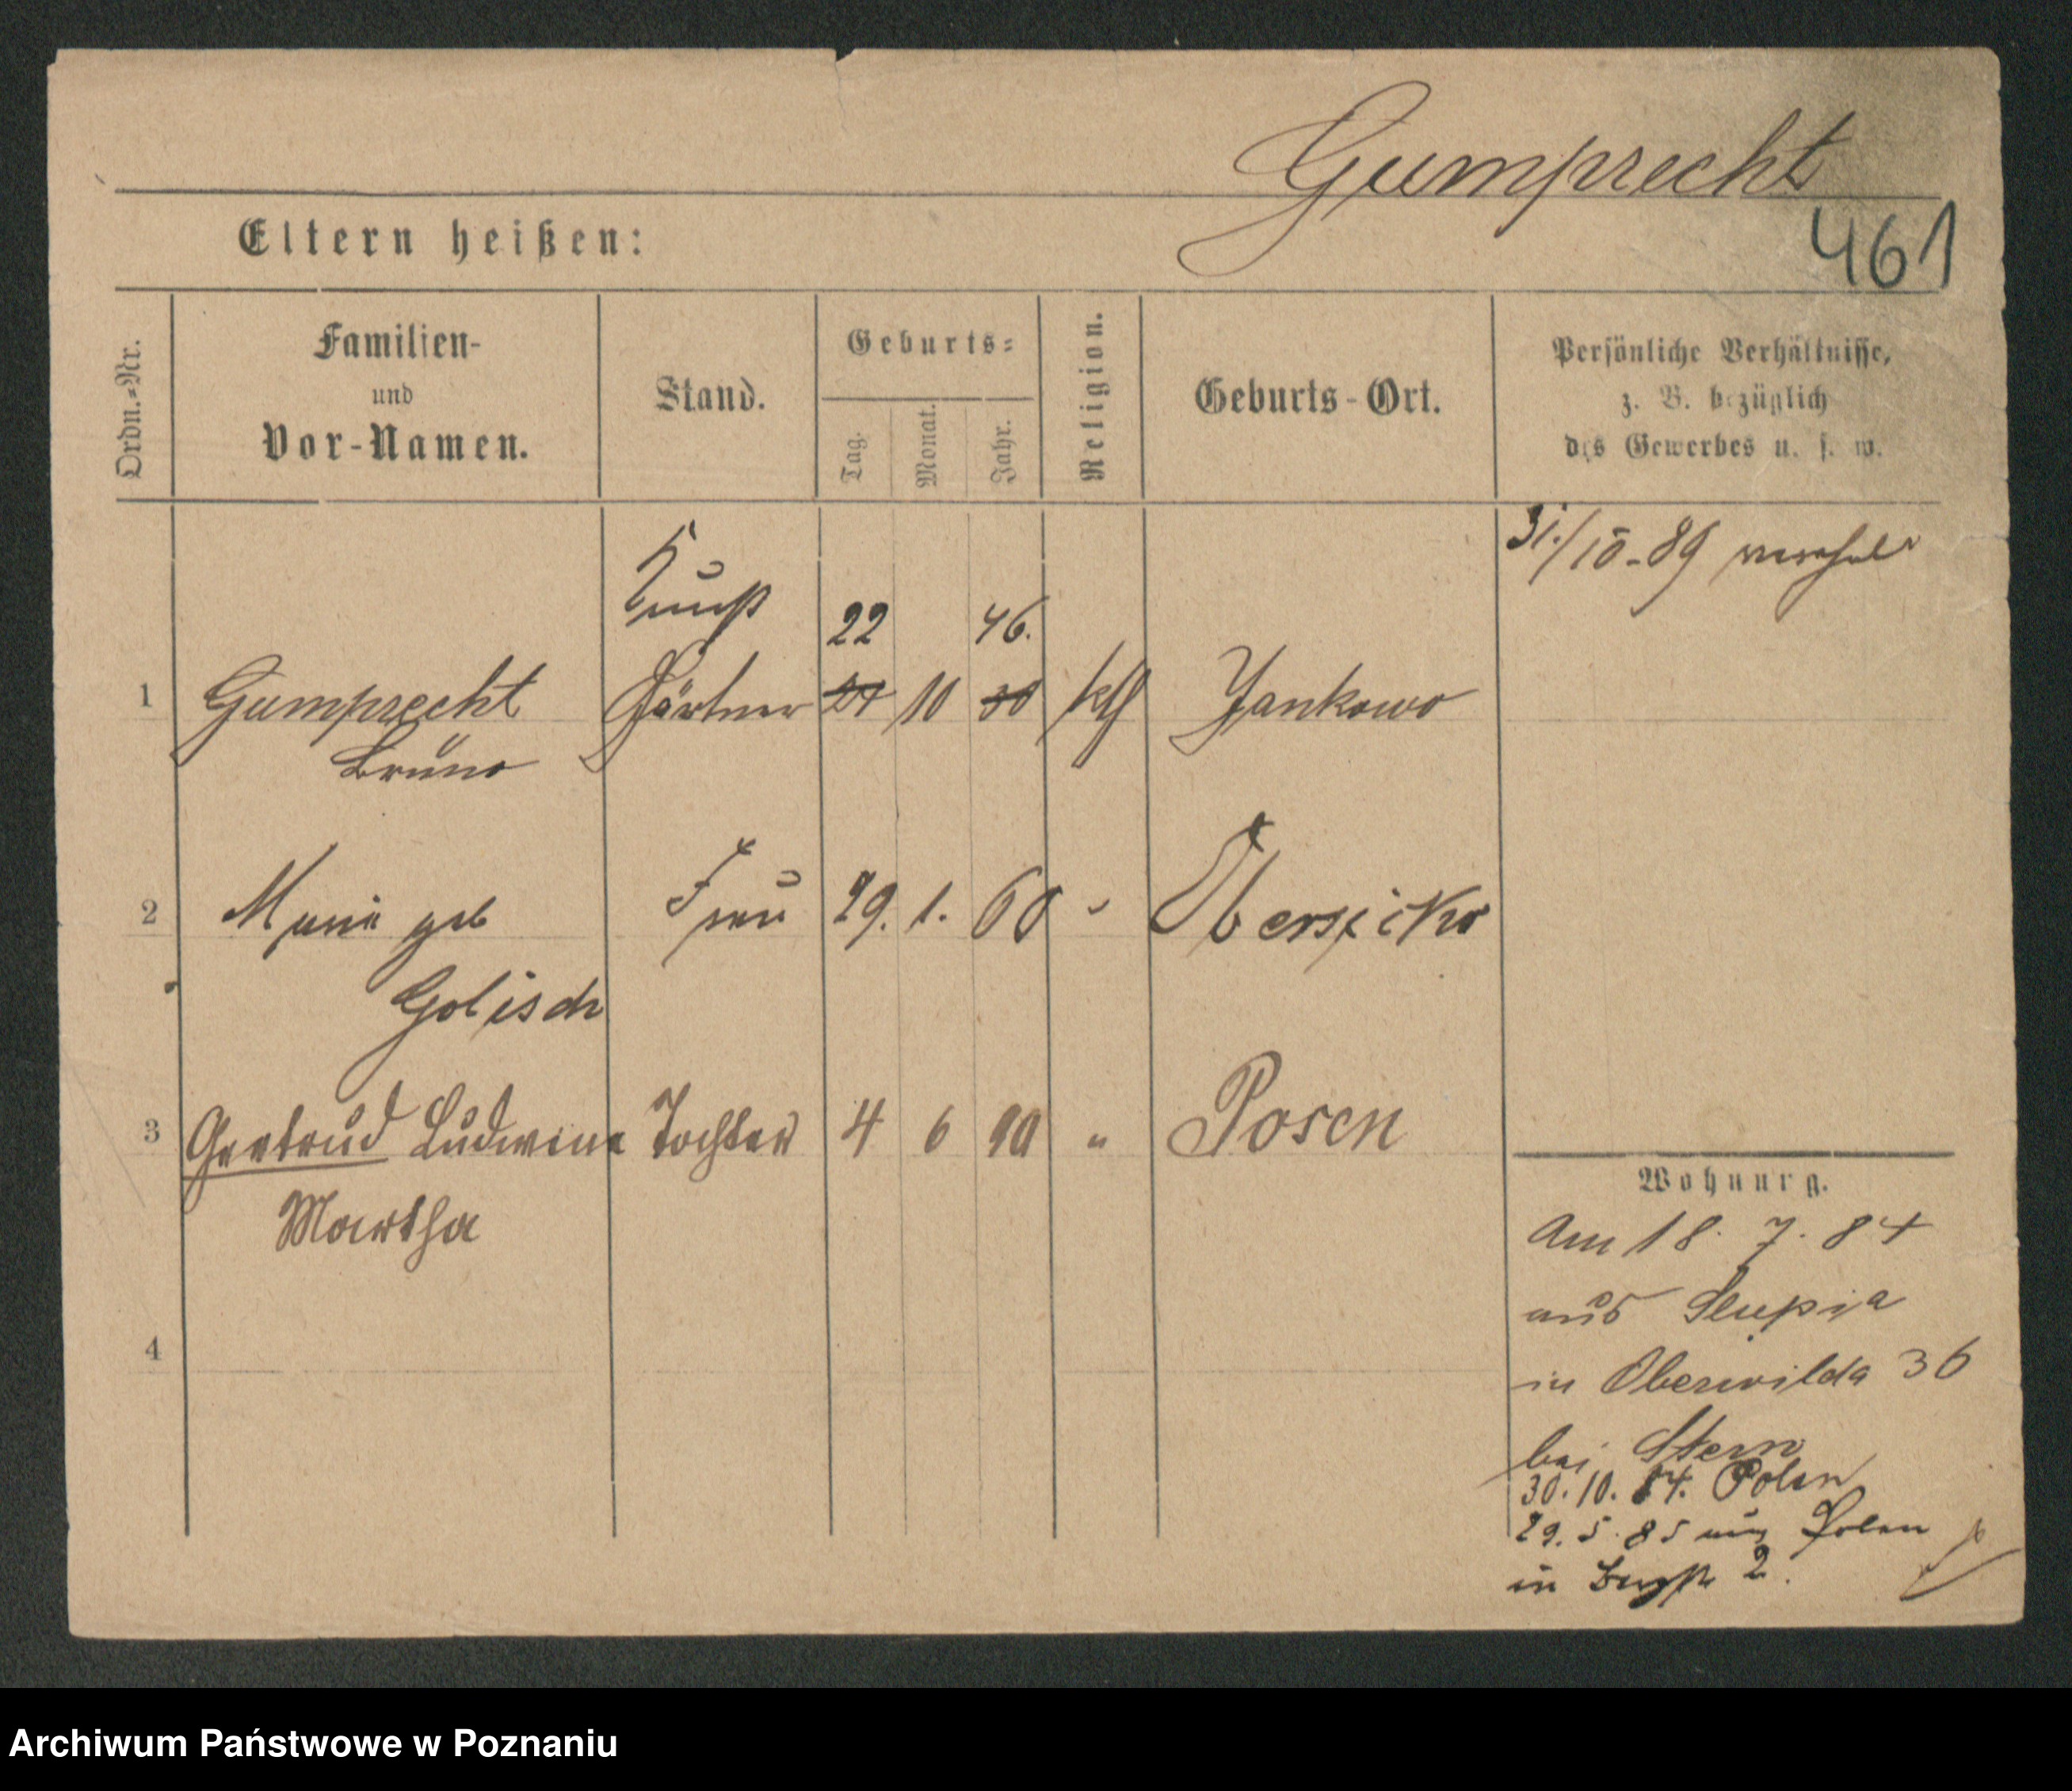 Gumprecht
461
Eltern heißen:
Ordn.-Nr.
Familien-
und
Vor-Namen.
Stand.
Geburts-
Tag.
Monat.
Jahr.
Religion.
Geburts-Ort.
Persönliche Verhältnisse,
z. B. bezüglich
des Gewerbes u. s. w.
31./10-89 verehel
Kunst
22 46.
1 Gumprecht Gärtner 10 kth Jankowo
Bruno
2 Marie geb Frau 29. 1. 60 " Obersitzko
Golisch
3 Gertrud Ludwina Tochter 4 6 90 " Posen
Martha
4
Wohnung.
Am 18. 7. 84
aus Slupia
in Oberwilda 36
bei Stern
30. 10. 84. Polen
29. 5. 85 aus Polen
in 2.
Archiwum Państwowe w Poznaniu